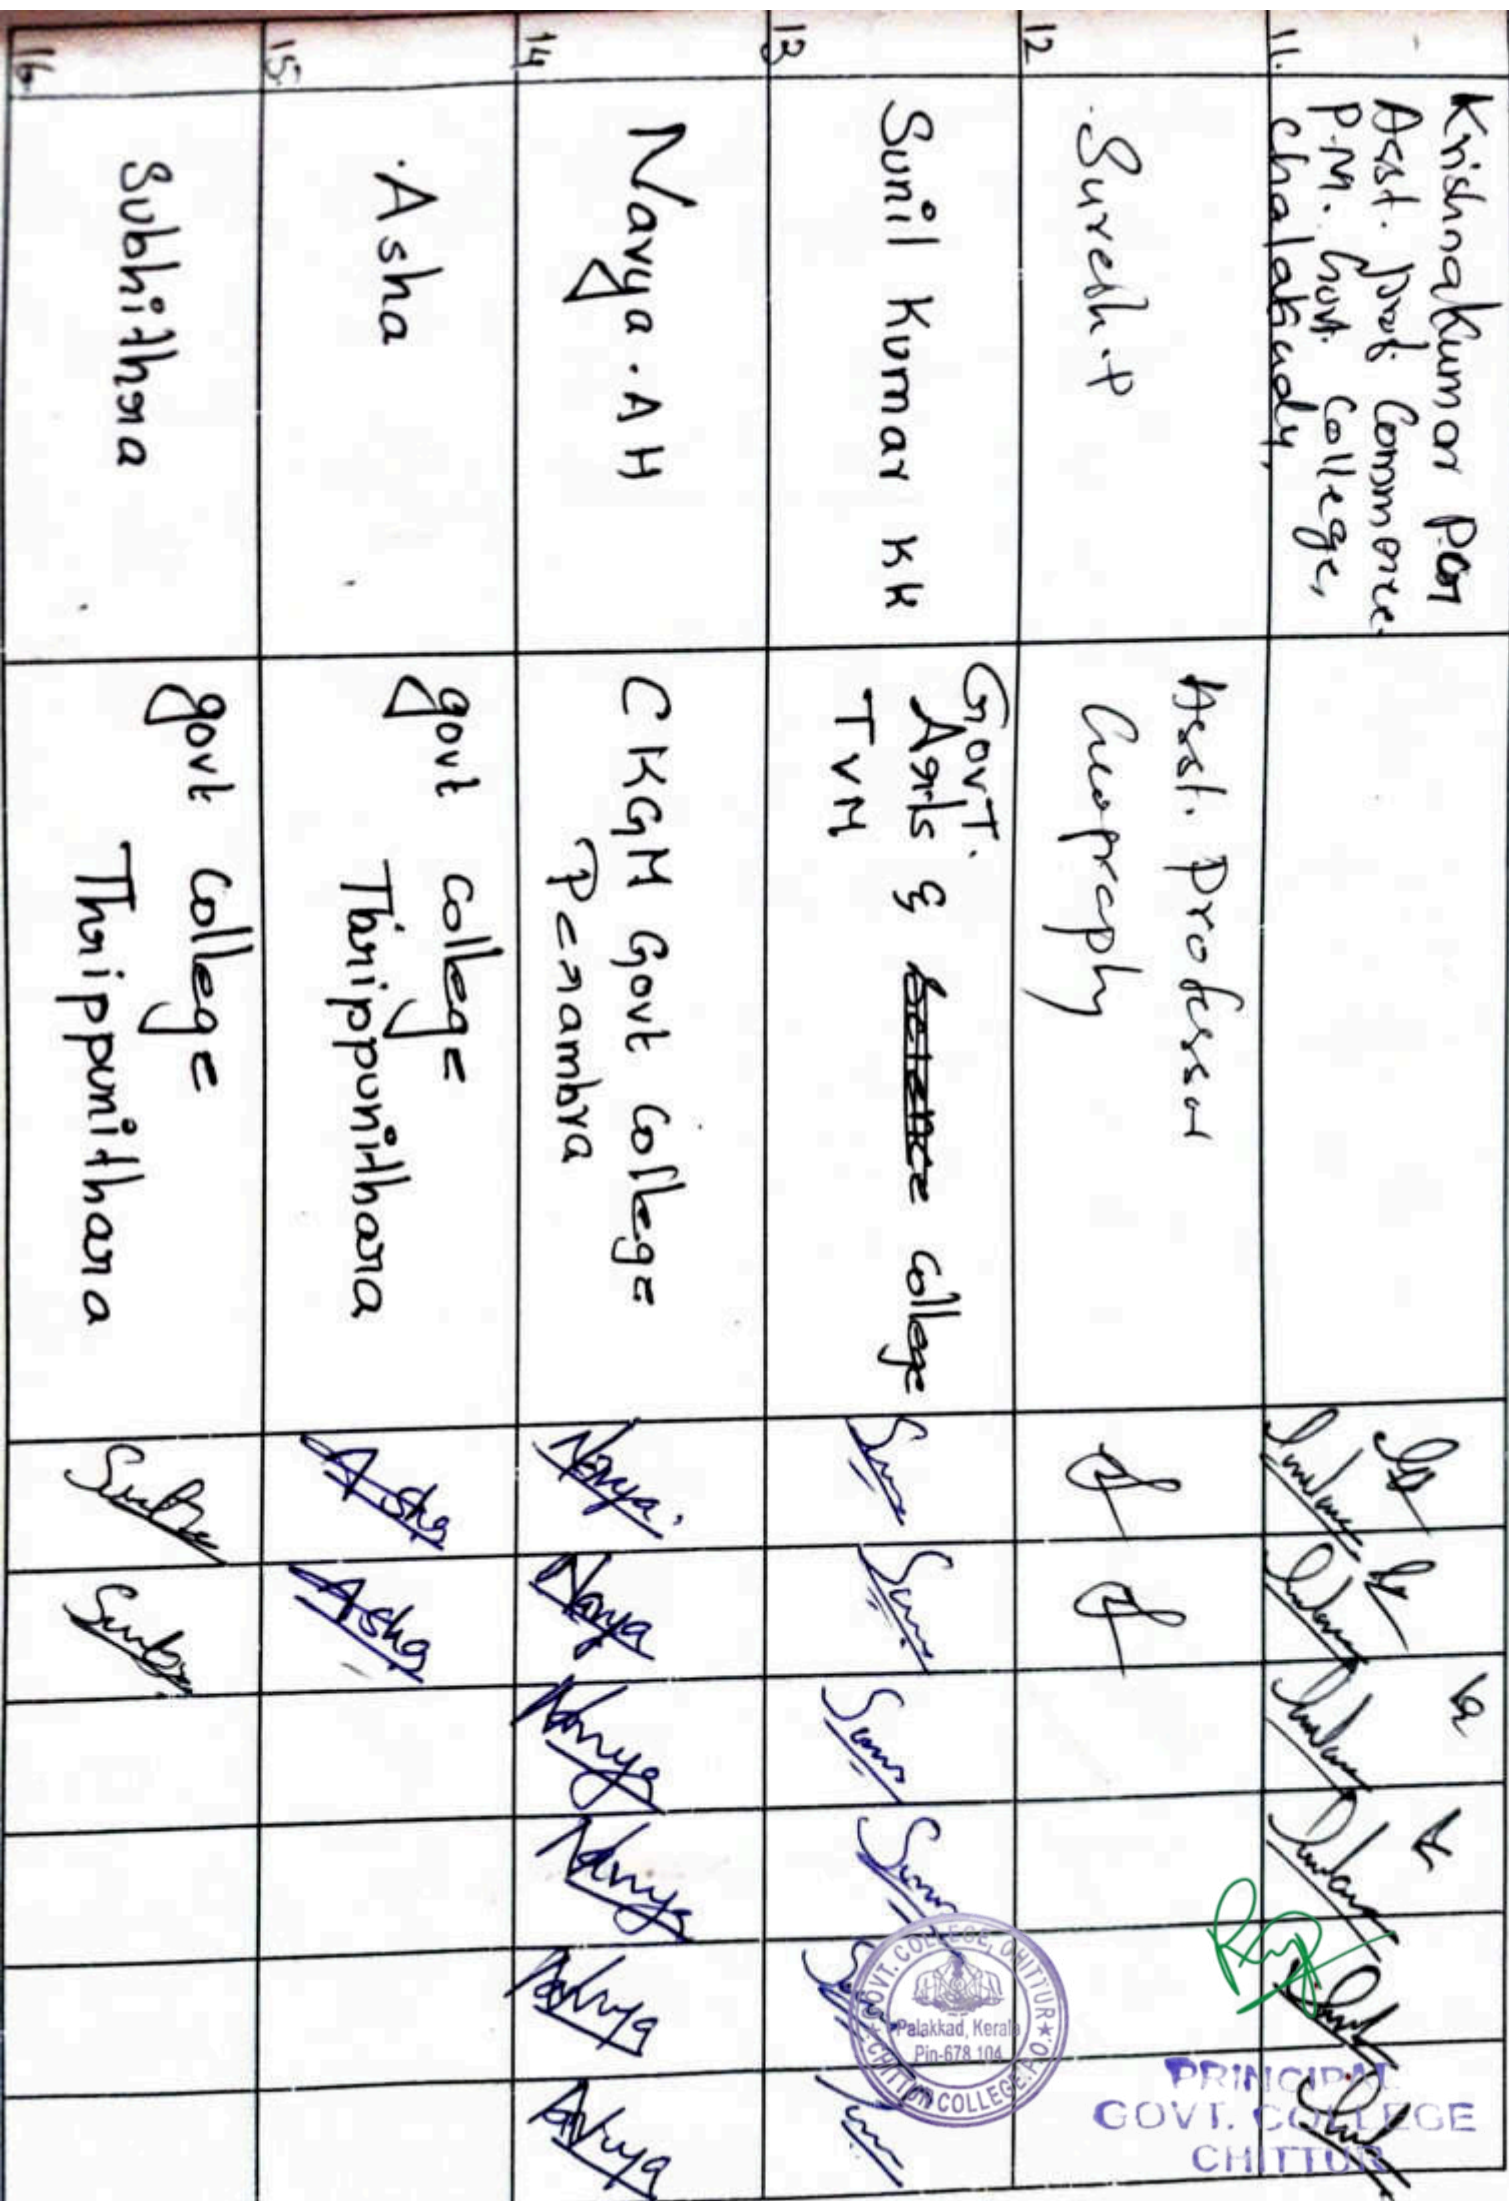 11.
Krishnakumar P.G
Asst. Prof. Commerce.
P.M. Govt. College,
Chalakudy,
12
Suresh.P
Asst. Professor
Geography
13
Sunil Kumar KK
GovT.
Arts & college
TVM
Sunil
Sunil
Sunil
14
Navya.AH
CKGM Govt College
Perambra
Navya.
Navya
Navya
Navya
Navya
Navya
15.
Asha
govt college
Thrippunithara
Asha
Asha
16.
Subhithra
govt college
Thrippunithara
GOVT. COLLEGE, CHITTUR
Palakkad, Kerala
Pin-678 104
CHITTUR COLLEGE.P.O.
PRINCIPAL
GOVT. COLLEGE
CHITTUR